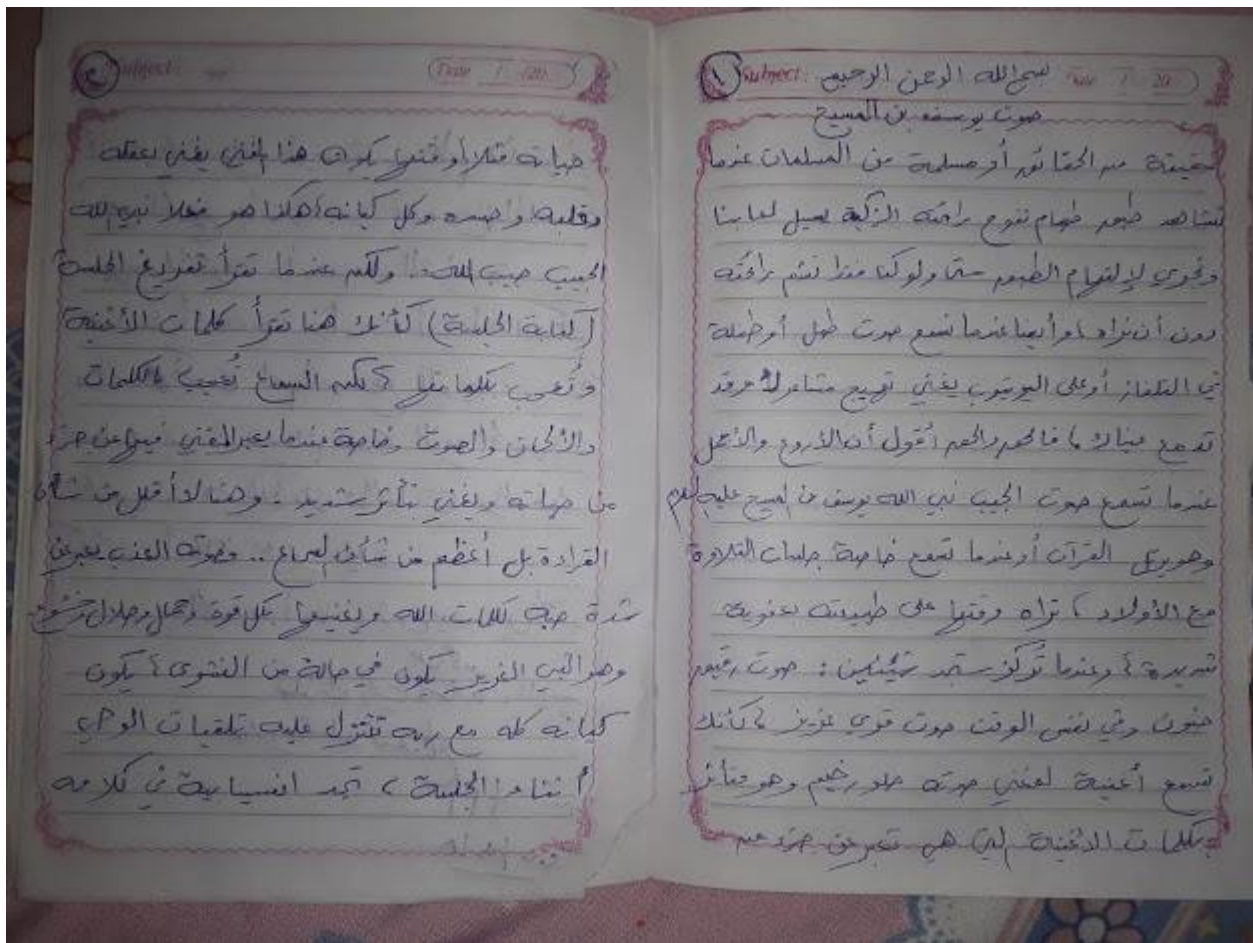 ١
Subject: بسم الله الرحمن الرحيم Date / / 20
صوت يوسف بن المسيح
حقيقة من الحقائق أو مسلمة من المسلمات عندما
نشاهد طبق طعام تفوح رائحته الزكية يسيل لعابنا
ونجري لإلتهام الطبق حتى ولو كنا فقط نشم رائحته
دون أن نراه ، وأيضا عندما نسمع صوت طفل أو طفلة
في التلفاز أو على اليوتيوب يغني تهيج مشاعرك وقد
تدمع عيناك ، فالحق والحق أقول أن الأروع والأجمل
عندما تسمع صوت الحبيب نبي الله يوسف بن المسيح عليه السلام
وهو يرتل القرآن أو عندما تسمع خاصة جلسات التلاوة
مع الأولاد ، تراه وقتها على طبيعته بعفوية
شديدة ، وعندما تركز ستجد شيئين : صوت رقيق
حنون وفي نفس الوقت صوت قوي عزيز ، كأنك
تسمع أغنية لمغني صوته حلو رخيم وهو متأثر
بكلمات الأغنية التي هي تعبر عن جزء من
٢
Subject: Date / /20
حياته مثلا أو قتها يكون هذا المغني يغني بعقله
وقلبه وأحسه وكل كيانه ، هكذا هو فعلا نبي الله
الحبيب حبيب الله .. ولكن عندما تقرأ تفريغ الجلسة
(كتابة الجلسة) كأنك هنا تقرأ كلمات الأغنية
وتُعجب بكلماتها ، لكن السماع تُعجب بالكلمات
والألحان والصوت وخاصة عندما يعبر المغني فيها عن جزء
من حياته ويغني بتأثر شديد . وهنا لا أقلل من شأن
القراءة بل أعظم من شأن السماع .. فصوته العذب يعبر عن
شدة حبه لكلمات الله ويغنيها بكل قوة وجمال وجلال وخشوع
وهو النبي العزيز يكون في حالة من النشوى ، يكون
كيانه كله مع ربه تتنزل عليه تلقيات الوحي
أثناء الجلسة ، تجد انسيابية في كلامه